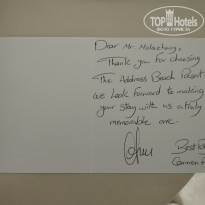 TOP Hotels
Dear Mr.
Thank you for choosing
The Address Beach Resort
we look forward to making
your stay with us a truly
memorable one.
Best
Carmen